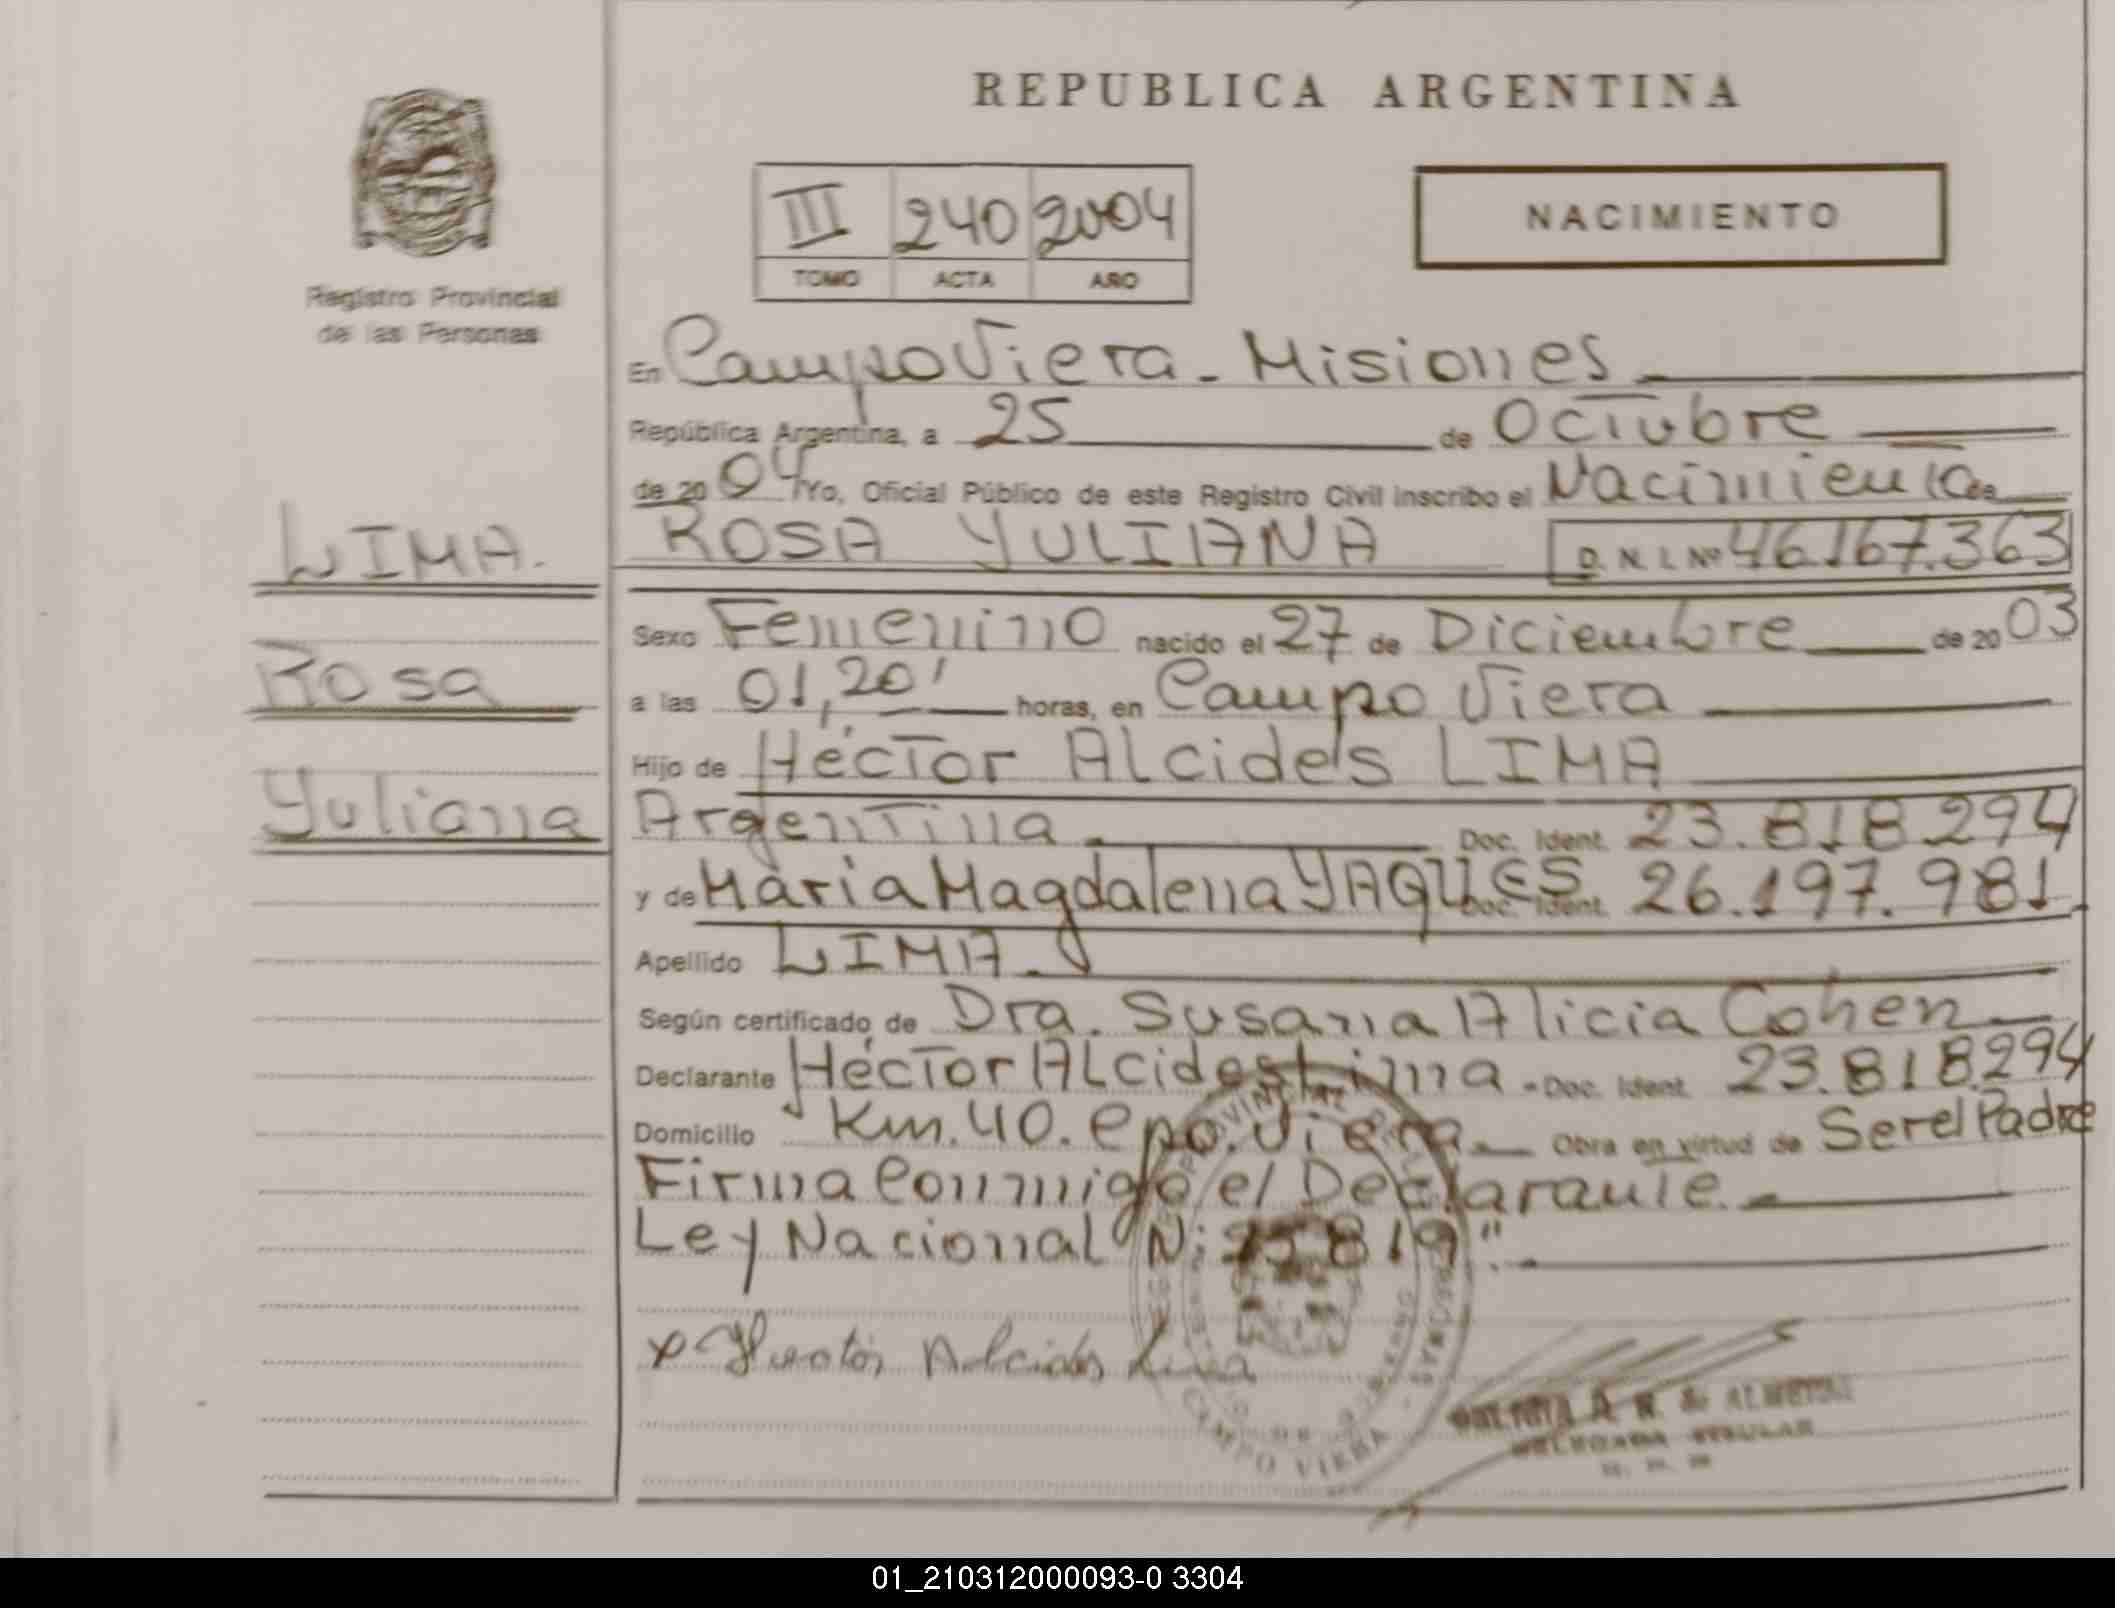 REPUBLICA ARGENTINA
III 240 2004
TOMO ACTA AÑO
NACIMIENTO
Registro Provincial
de las Personas
LIMA.
Rosa
Yuliana
En Campo Viera - Misiones
República Argentina, a 25 de Octubre
de 2004 Yo, Oficial Público de este Registro Civil inscribo el Nacimiento de
ROSA YULIANA D.N.I. Nº 46.167.363
Sexo Femenino nacido el 27 de Diciembre de 2003
a las 01,20' horas, en Campo Viera
Hijo de Héctor Alcides LIMA
Argentina Doc. Ident. 23.818.294
y de María Magdalena YAQUES Doc. Ident. 26.197.981
Apellido LIMA
Según certificado de Dra. Susana Alicia Cohen
Declarante Héctor Alcides Lima - Doc. Ident. 23.818.294
Domicilio Km. 40. Cpo. Viera Obra en virtud de Ser el Padre
Firma Conmigo el Declarante.
Ley Nacional Nº 25819".
x Hector Alcides Lima
CAMPO VIERA
A. R. de ALMEIDA
DELEGADA TITULAR
01_210312000093-0 3304